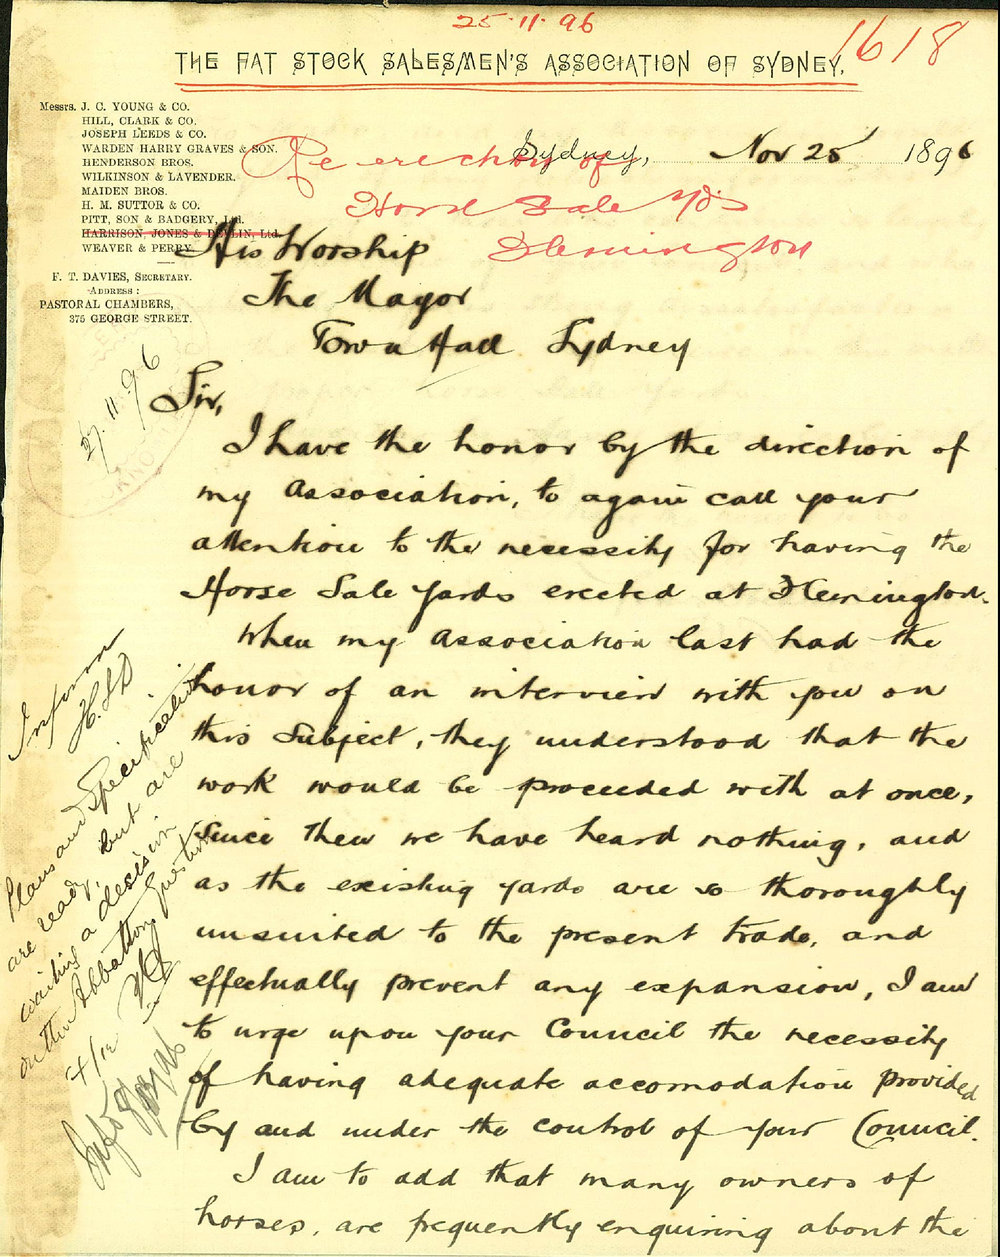 25·11·96
1618
THE FAT STOCK SALESMEN'S ASSOCIATION OF SYDNEY.
Messrs. J. C. YOUNG & CO.
HILL, CLARK & CO.
JOSEPH LEEDS & CO.
WARDEN HARRY GRAVES & SON.
HENDERSON BROS.
WILKINSON & LAVENDER.
MAIDEN BROS.
H. M. SUTTOR & CO.
PITT, SON & BADGERY, Ltd.
HARRISON, JONES & DEVLIN, Ltd.
WEAVER & PERRY.
F. T. DAVIES, SECRETARY.
ADDRESS:
PASTORAL CHAMBERS,
375 GEORGE STREET.
Sydney, Nov 25 1896
Re erection of
Horse Sale Yds
Flemington
His Worship
The Mayor
Town Hall Sydney
27.11.96
Sir,
I have the honor by the direction of
my Association, to again call your
attention to the necessity for having the
Horse Sale Yards erected at Flemington.
When my Association last had the
honor of an interview with you on
this Subject, they understood that the
work would be proceeded with at once,
Since then we have heard nothing, and
as the existing yards are so thoroughly
unsuited to the present trade, and
effectually prevent any expansion, I am
to urge upon your Council the necessity
of having adequate accomodation provided
by and under the control of your Council.
I am to add that many owners of
horses, are frequently enquiring about the
Inform
Plans and Specification
are ready, but are
waiting a decision
on the Abbattoirs question
4/12